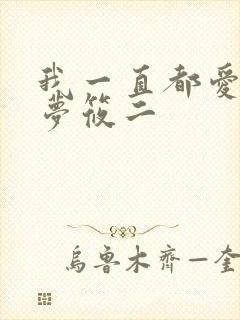 我一直都愛
夢筱二
烏魯木齊—奎